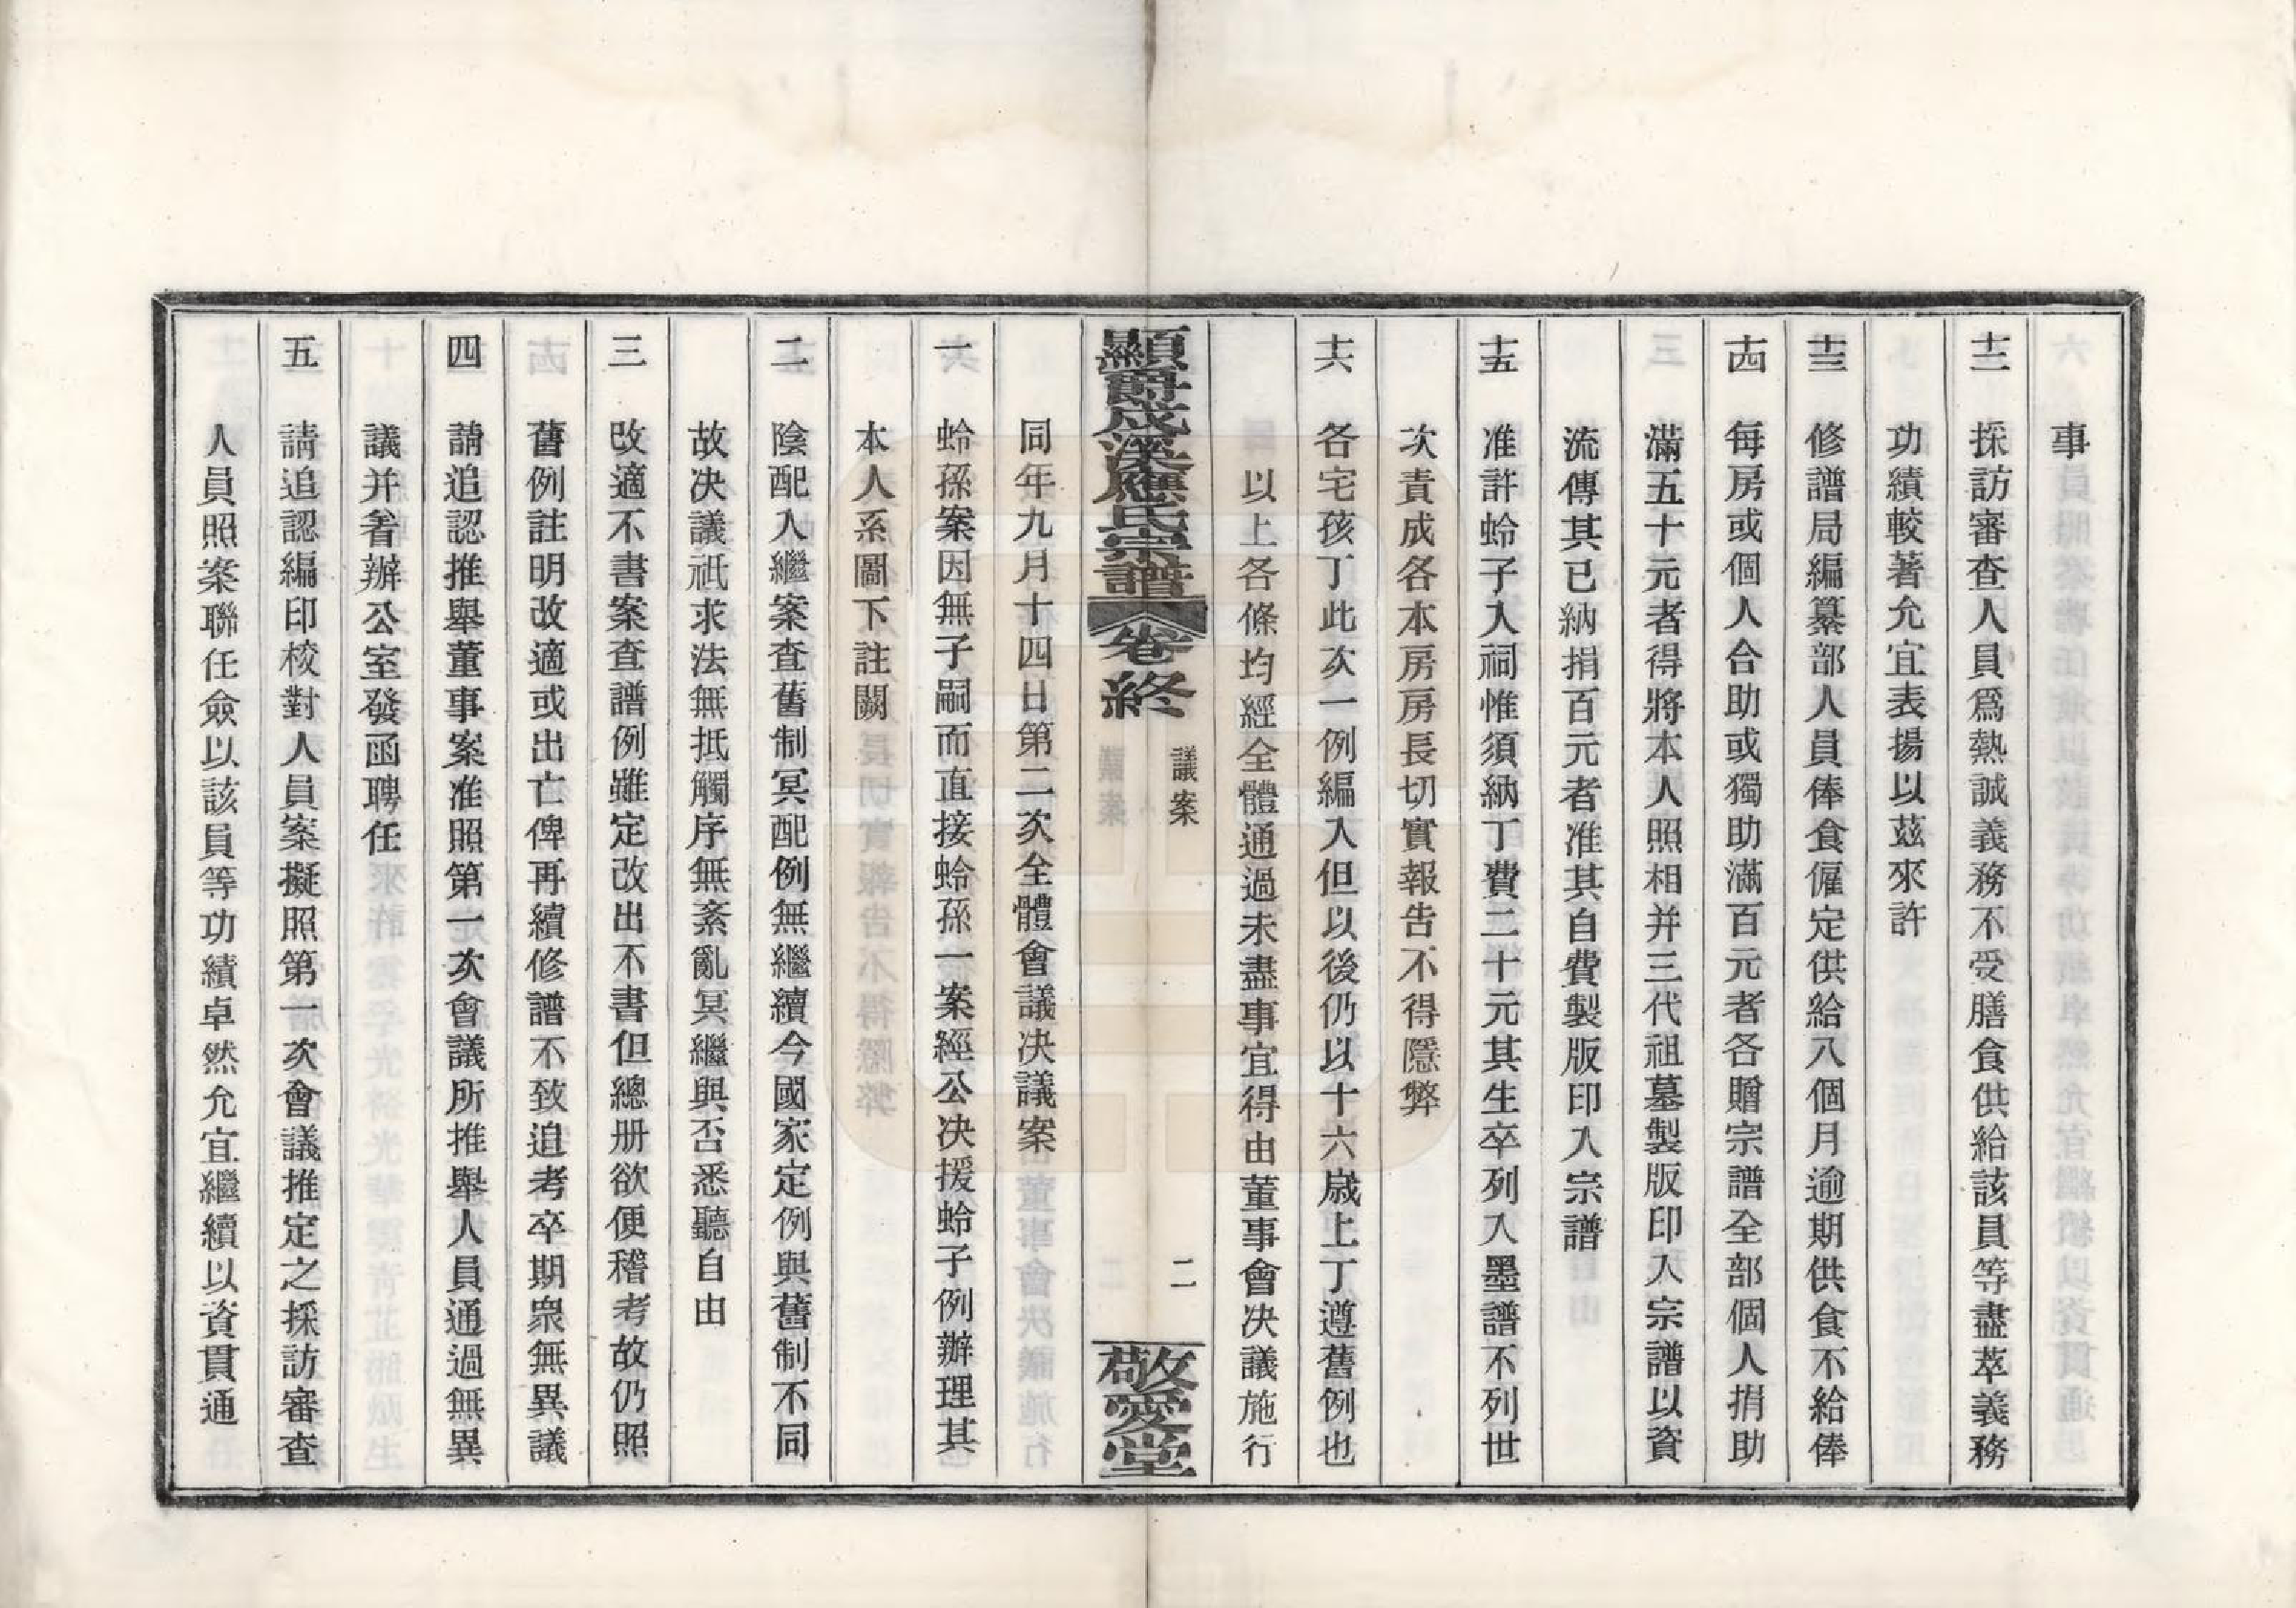 事
十二　採訪審查人員爲熱誠義務不受膳食供給該員等盡萃義務
功績較著允宜表揚以茲來許
十三　修譜局編纂部人員俸食僱定供給八個月逾期供食不給俸
十四　每房或個人合助或獨助滿百元者各贈宗譜全部個人捐助
滿五十元者得將本人照相并三代祖墓製版印入宗譜以資
流傳其已納捐百元者准其自費製版印入宗譜
十五　准許蛉子入祠惟須納丁費二十元其生卒列入墨譜不列世
次責成各本房房長切實報告不得隱弊
十六　各宅孩丁此次一例編入但以後仍以十六歲上丁遵舊例也
以上各條均經全體通過未盡事宜得由董事會决議施行
顯爵成溪應氏宗譜　卷終　議案　二　敬愛堂
同年九月十四日第二次全體會議决議案
一　蛉孫案因無子嗣而直接蛉孫一案經公决援蛉子例辦理其
本人系圖下註闕
二　陰配入繼案查舊制冥配例無繼續今國家定例與舊制不同
故决議祇求法無抵觸序無紊亂冥繼與否悉聽自由
三　改適不書案查譜例雖定改出不書但總册欲便稽考故仍照
舊例註明改適或出亡俾再續修譜不致追考卒期衆無異議
四　請追認推舉董事案准照第一次會議所推舉人員通過無異
議并着辦公室發函聘任
五　請追認編印校對人員案擬照第一次會議推定之採訪審查
人員照案聯任僉以該員等功績卓然允宜繼續以資貫通